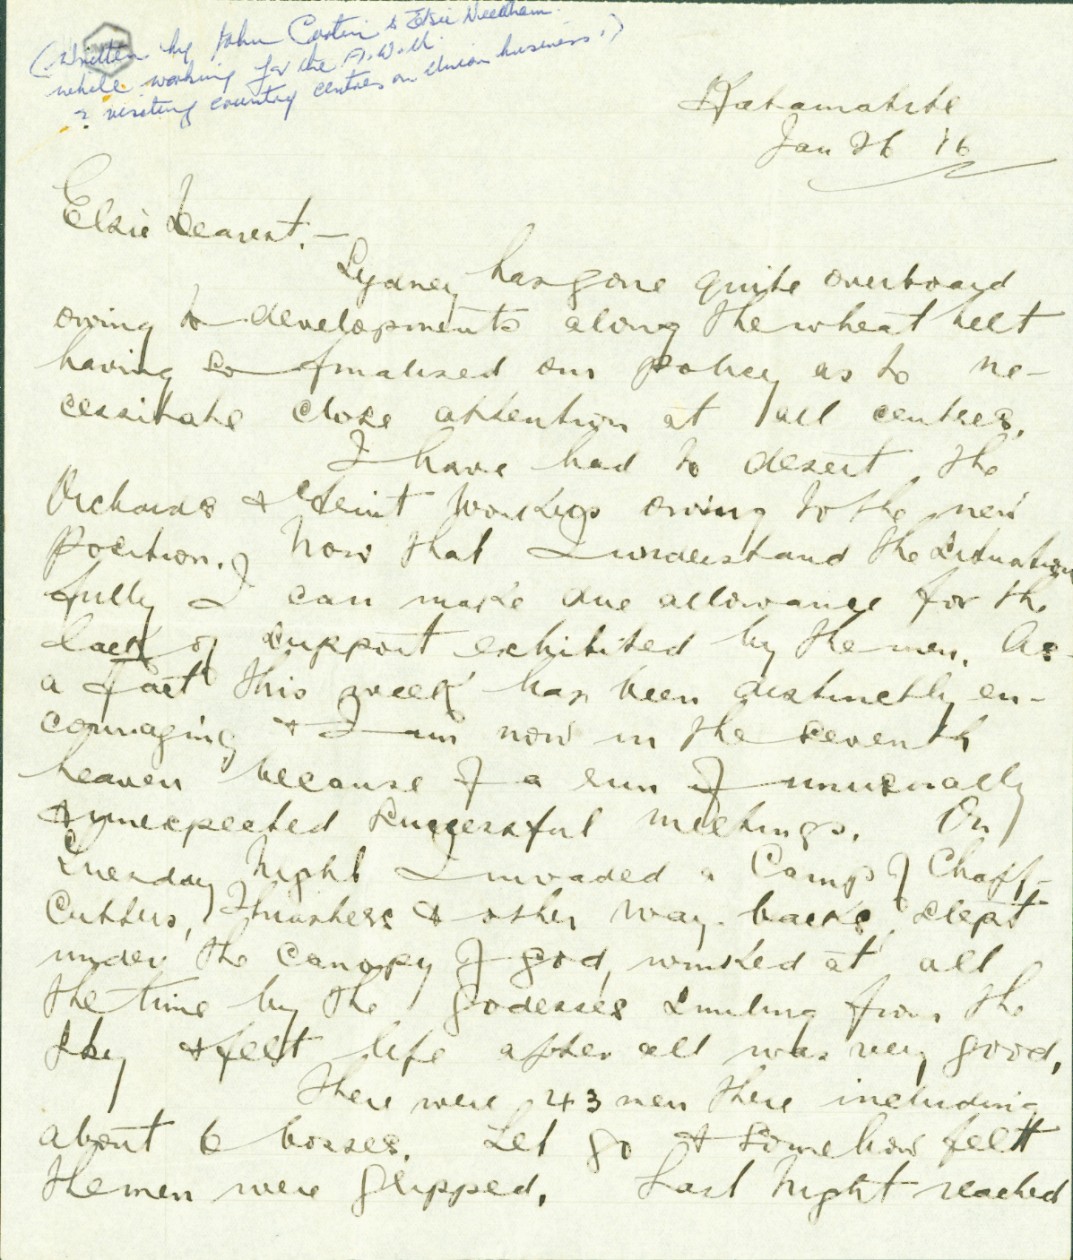 (Written by John Curtin to Elsie Needham
while working for the A.W.U.
& visiting country centres on Union business.)
Katamatite
Jan 26 16
Elsie Dearest. —
Sydney has gone quite overboard
owing to developments along the wheat belt
having so finalised our policy as to ne-
cessitate close attention at all centres.
I have had to desert the
Orchards & fruit workers owing to the new
position. Now that I understand the situation
fully I can make due allowance for the
lack of support exhibited by the men. As
a fact this week has been distinctly en-
couraging & I am now in the seventh
heaven because of a run of unusually
& unexpected successful meetings. On
Tuesday Night I invaded a Camp of Chaff-
Cutters, Thrashers & other way-backs, slept
under the canopy of god, winked at all
the time by the godesses smiling from the
sky & felt life after all was very good.
There were 43 men there including
about 6 bosses. Let go & somehow felt
the men were gripped. Last Night reached